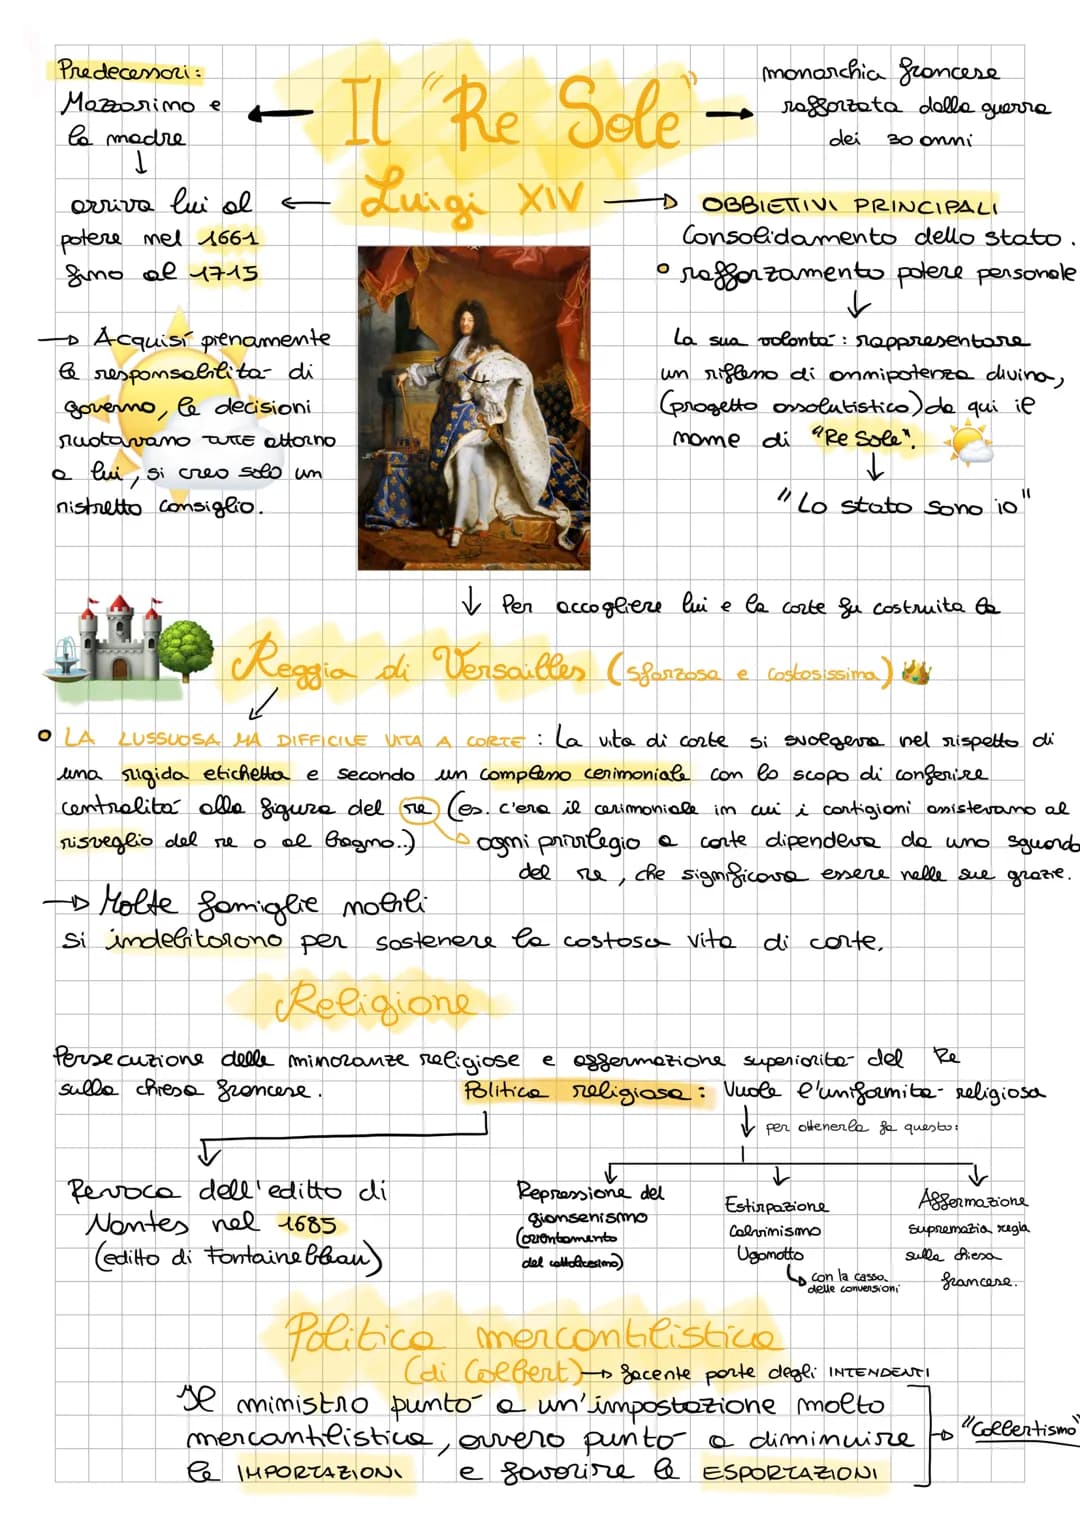 Predecessori:
Mazzarino e
la madre
Il "Re Sole"
Luigi XIV
monarchia francese
rafforzata dalla guerra
dei 30 anni
arriva lui al
potere nel 1661
fino al 1715
OBBIETTIVI PRINCIPALI
Consolidamento dello stato.
rafforzamento potere personale
→ Acquisí pienamente
la responsabilità di
governo, le decisioni
ruotavano TUTTE attorno
a lui, si creo solo un
ristretto consiglio.
La sua volontà: rappresentare
un riflesso di onnipotenza divina,
(progetto assolutistico) da qui il
nome di "Re Sole".
"Lo stato sono io"
↓ Per accogliere lui e la corte fu costruita la
Reggia di Versailles (sfarzosa e costosissima)
• LA LUSSUOSA MA DIFFICILE VITA A CORTE: La vita di corte si svolgeva nel rispetto di
una rigida etichetta e secondo un complesso cerimoniale con lo scopo di conferire
centralità alla figura del re (es. c'era il cerimoniale in cui i cortigiani assistevano al
risveglio del re o al bagno..)
ogni privilegio a corte dipendeva da uno sguardo
del re, che significava essere nelle sue grazie.
→ Molte famiglie nobili
si indebitarono per sostenere la costosa vita di corte.
Religione
Persecuzione delle minoranze religiose e affermazione superiorità del Re
sulla chiesa francese.
Politica religiosa: Vuole l'uniformità religiosa
↓ per ottenerla fa questo:
Revoca dell'editto di
Nantes nel 1685
(editto di Fontainebleau)
Repressione del
giansenismo
(orientamento
del cattolicesimo)
Estirpazione
Calvinismo
Ugonotto
con la cassa
delle conversioni
Affermazione
supremazia regia
sulla chiesa
francese.
Politica mercantilistica
(di Colbert) → facente parte degli INTENDENTI
Il ministro puntò a un'impostazione molto
mercantilistica, ovvero puntò a diminuire
le IMPORTAZIONI e favorire le ESPORTAZIONI
"Colbertismo"